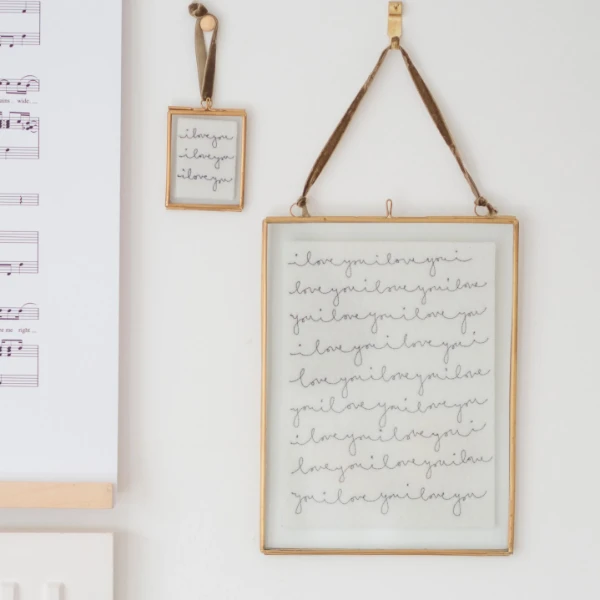 wide
me right
i love you
i love you
i love you
i love you i love you i
love you i love you i love
you i love you i love you
i love you i love you i
love you i love you i love
you i love you i love you
i love you i love you i
love you i love you i love
you i love you i love you